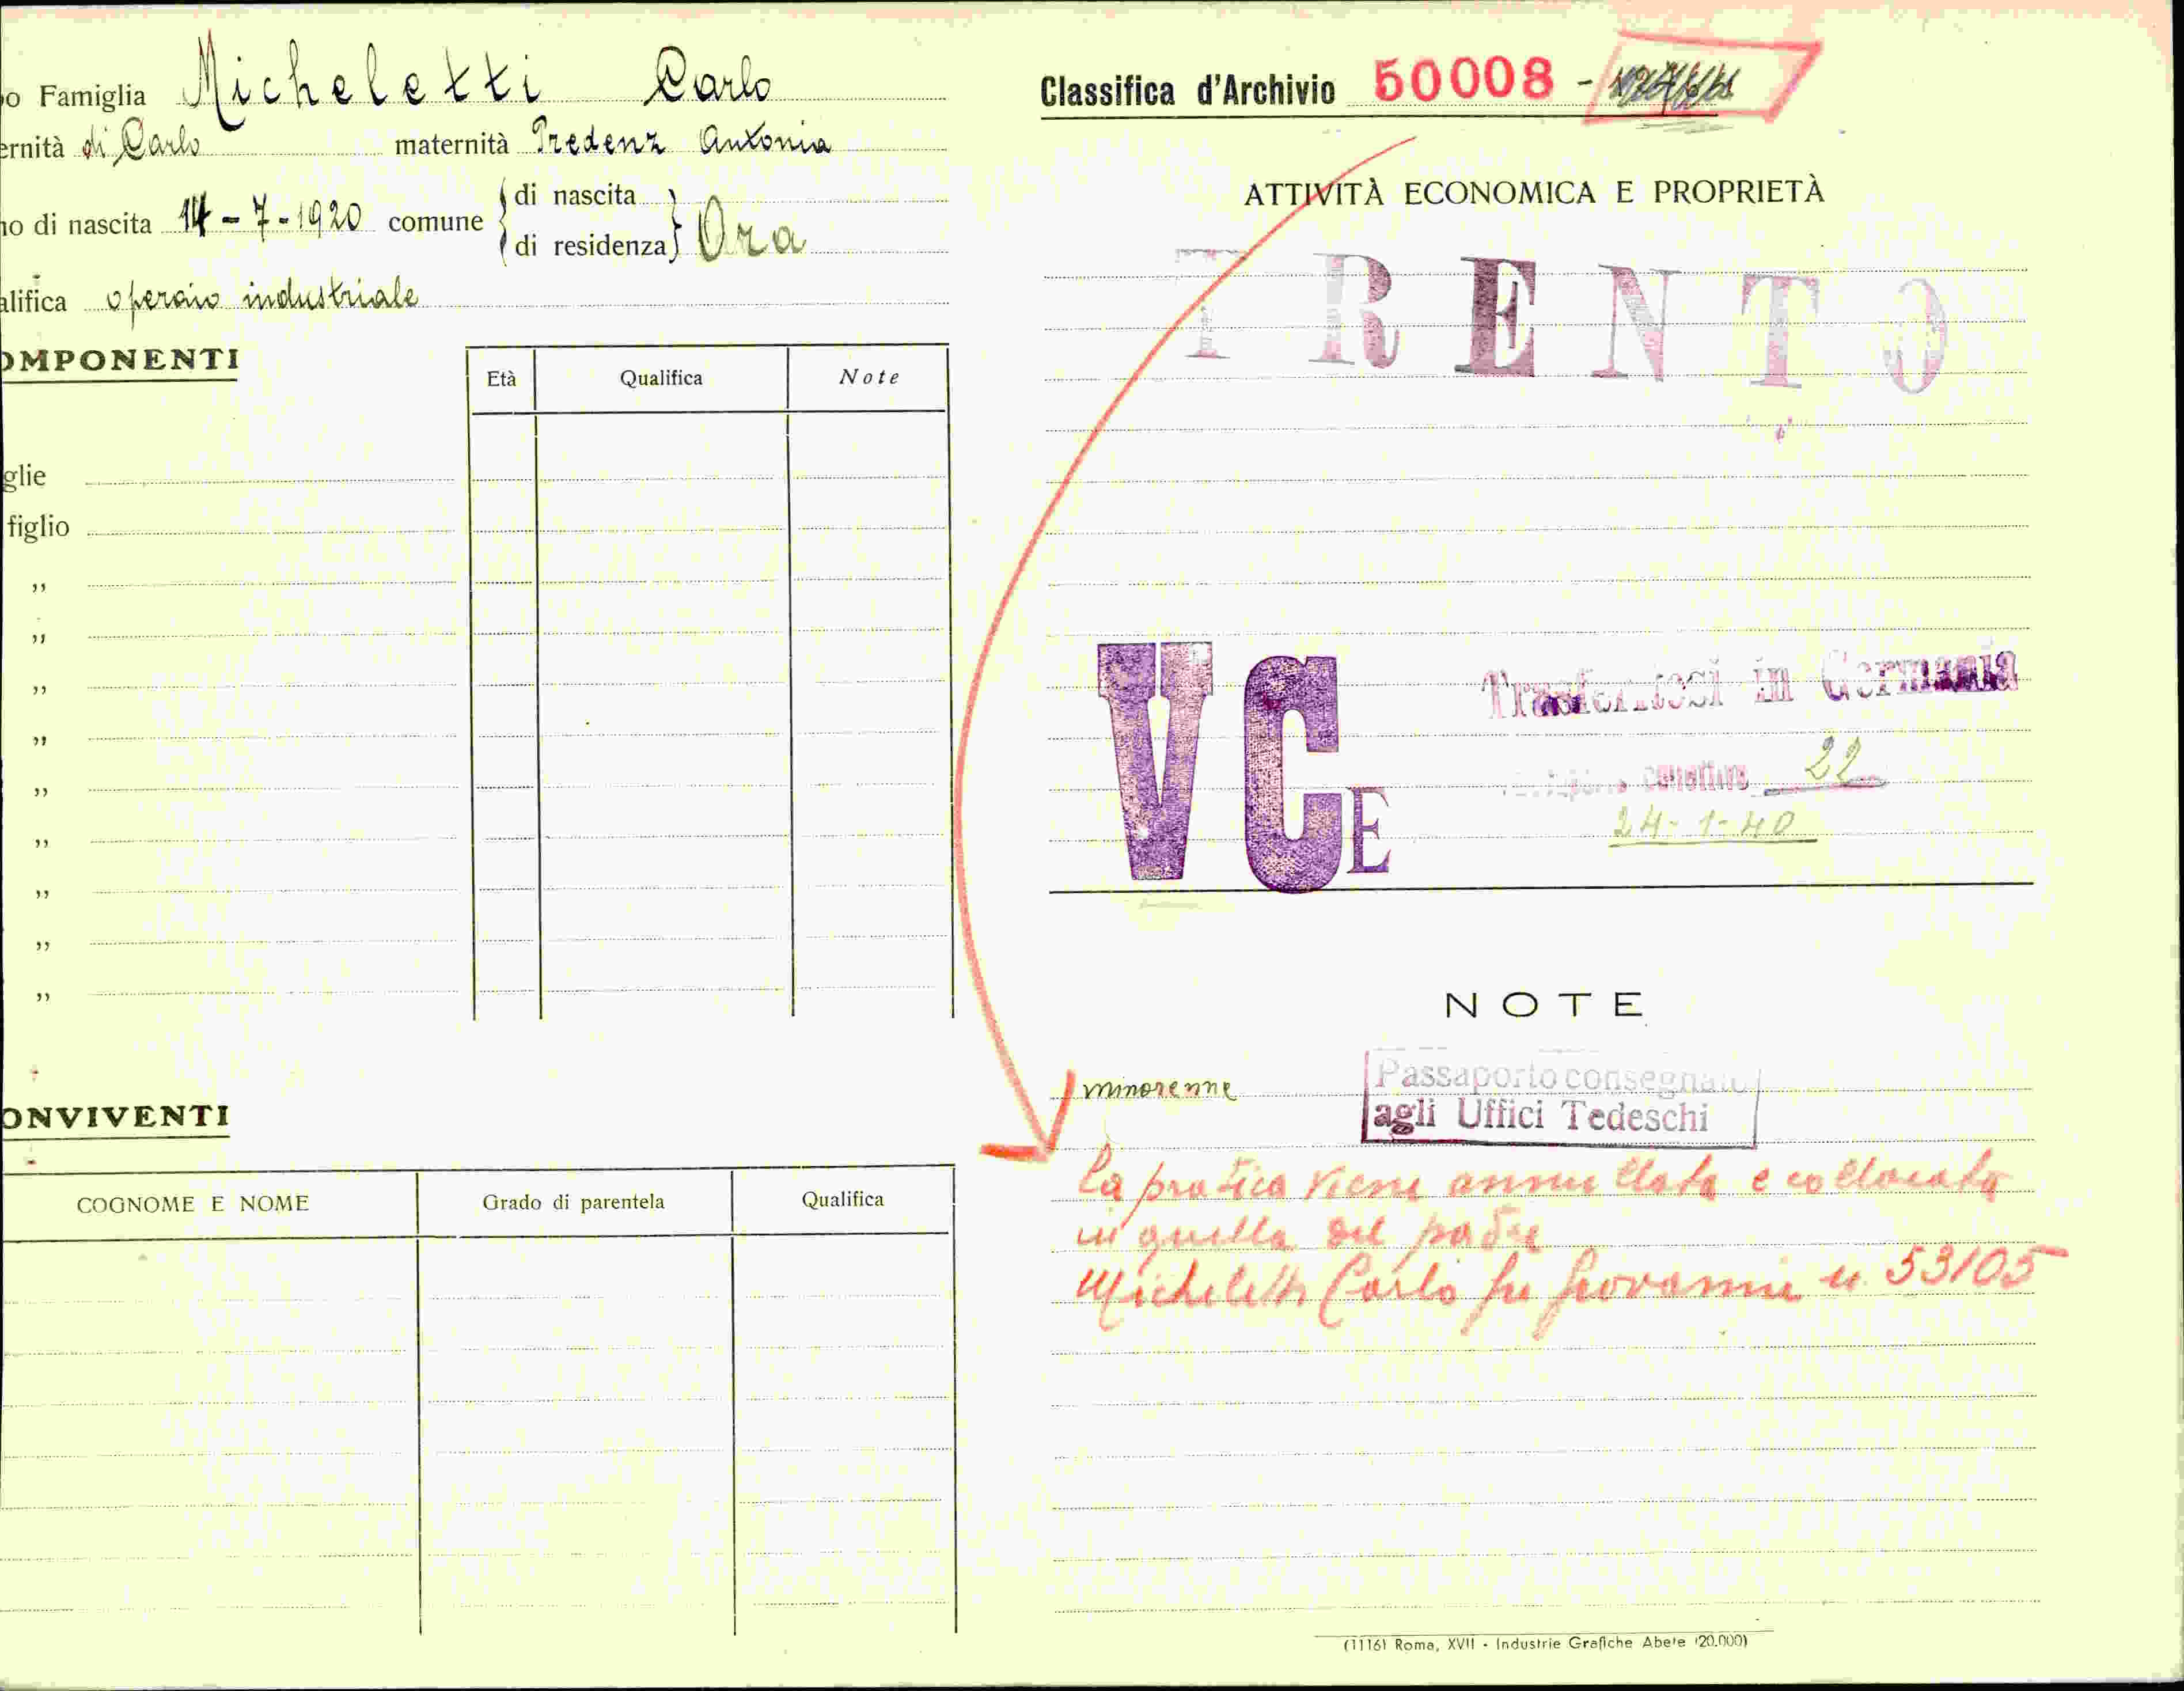 o Famiglia Micheletti Carlo
ernità di Carlo maternità Predenz Antonia
no di nascita 14-7-1920 comune di nascita
di residenza Ora
alifica operaio industriale
OMPONENTI
Età Qualifica Note
glie
figlio
„
„
„
„
„
„
„
„
„
ONVIVENTI
COGNOME E NOME Grado di parentela Qualifica
Classifica d'Archivio 50008 -
ATTIVITÀ ECONOMICA E PROPRIETÀ
TRENTO
VCE
Trasferitosi in Germania
collettivo 22
24-1-40
NOTE
minorenne
Passaporto consegnato
agli Uffici Tedeschi
la pratica viene annullata e collocata
in quella del padre
Micheletti Carlo fu Giovanni n 53105
(1116) Roma, XVII - Industrie Grafiche Abete (20.000)